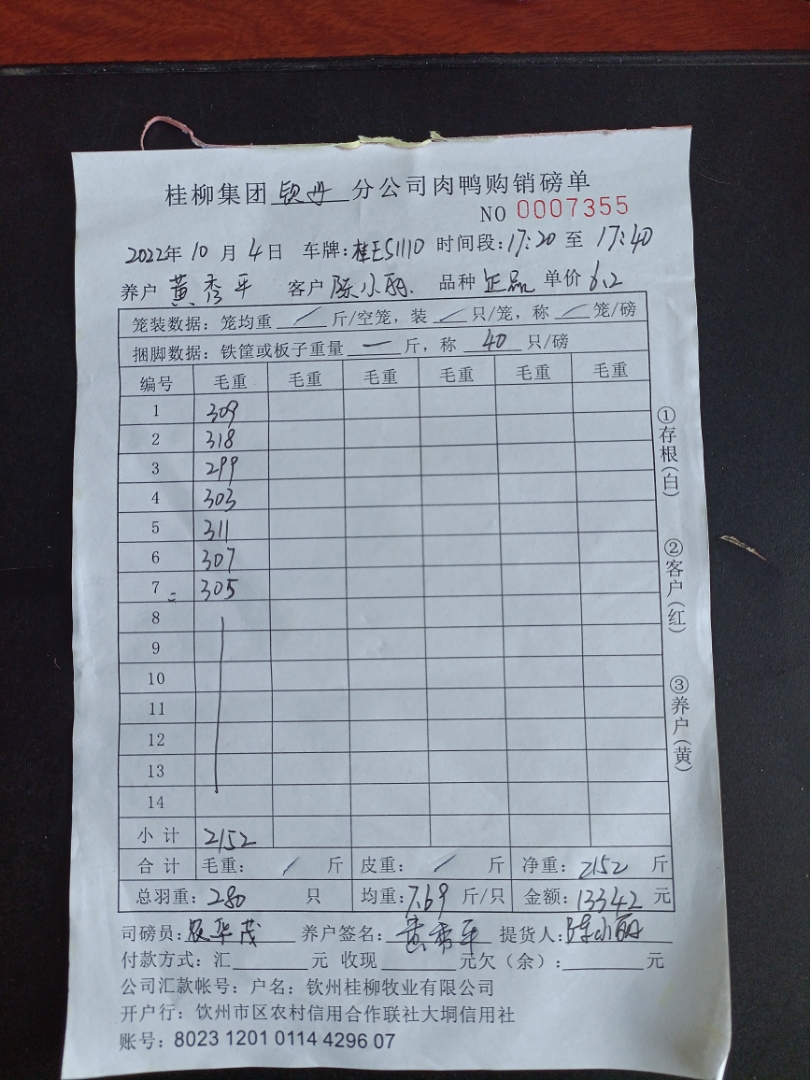 桂柳集团钦丹分公司肉鸭购销磅单
NO 0007355
2022年10月4日 车牌:桂E51110 时间段:17:20至17:40
养户 黄秀平 客户 陈小丽. 品种 正品 单价 6.2
笼装数据:笼均重 / 斤/空笼,装 / 只/笼,称 / 笼/磅
捆脚数据:铁筐或板子重量 一 斤,称 40 只/磅
编号 毛重 毛重 毛重 毛重 毛重 毛重
1 309
2 318
3 299
4 303
5 311
6 307
7 305
8
9
10
11
12
13
14
小计 2152
合计 毛重: / 斤 皮重: / 斤 净重: 2152 斤
总羽重: 280 只 均重: 7.69 斤/只 金额: 13342 元
司磅员: 华茂 养户签名: 黄秀平 提货人: 陈小丽
付款方式:汇 元 收现 元欠(余): 元
公司汇款帐号:户名:钦州桂柳牧业有限公司
开户行:饮州市区农村信用合作联社大垌信用社
账号:8023 1201 0114 4296 07
①存根(白)
②客户(红)
③养户(黄)